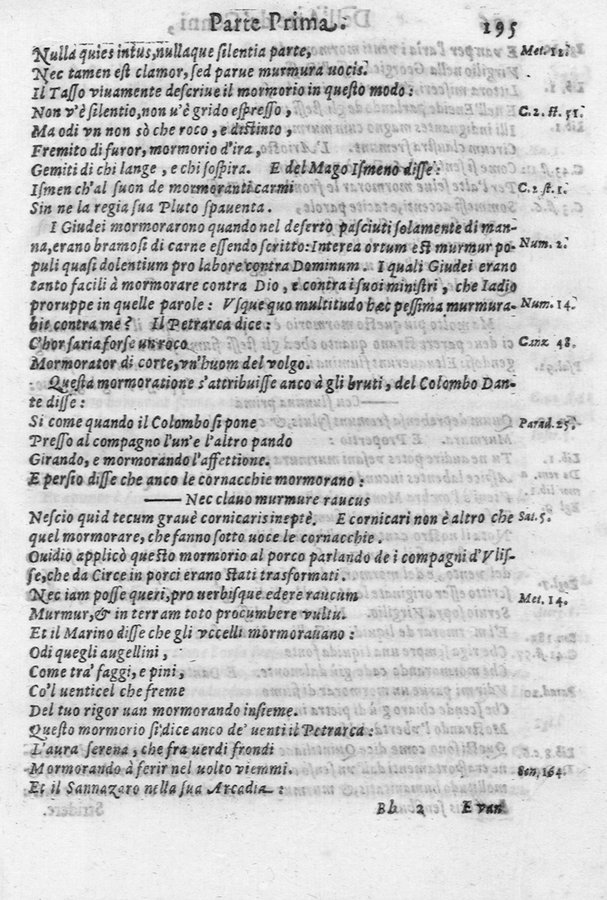 Parte Prima. 195
Nulla quies intus, nullaque silentia parte, Met. 12.
Nec tamen est clamor, sed parue murmura uocis.
Il Tasso viuamente descriue il mormorio in questo modo:
Non v'è silentio, non u'è grido espresso, C. 2. st. 51.
Ma odi vn non sò che roco, e distinto,
Fremito di furor, mormorio d'ira,
Gemiti di chi lange, e chi sospira. E del Mago Ismeno disse:
Ismen ch'al suon de mormoranti carmi C. 2. st. 1.
Sin ne la regia sua Pluto spauenta.
I Giudei mormorarono quando nel deserto pasciuti solamente di man-
na, erano bramosi di carne essendo scritto: Interea ortum est murmur po- Num. 2.
puli quasi dolentium pro labore contra Dominum. I quali Giudei erano
tanto facili à mormorare contra Dio, e contra i suoi ministri, che Iadio
proruppe in quelle parole: Vsque quo multitudo hæc pessima murmura- Num. 14.
bie contra me? Il Petrarca dice:
C'hor saria forse un roco Canz. 48.
Mormorator di corte, vn'huom del volgo.
Questa mormoratione s'attribuisse anco à gli bruti, del Colombo Dan-
te disse:
Si come quando il Colombo si pone Parad. 25.
Presso al compagno l'un'e l'altro pando
Girando, e mormorando l'affettione.
E persio disse che anco le cornacchie mormorano:
—— Nec clauo murmure raucus
Nescio quid tecum grauè cornicaris ineptè. E cornicari non è altro che Sat. 5.
quel mormorare, che fanno sotto uoce le cornacchie.
Ouidio applicò questo mormorio al porco parlando de i compagni d'Vlis-
se, che da Circe in porci erano stati trasformati.
Nec iam posse queri, pro uerbisque edere raucum Met. 14.
Murmur, & in terram toto procumbere vultu.
Et il Marino disse che gli vccelli mormorauano:
Odi quegli augellini,
Come tra' faggi, e pini,
Co'l uenticel che freme
Del tuo rigor uan mormorando insieme.
Questo mormorio si dice anco de' uenti il Petrarca:
L'aura serena, che fra uerdi frondi
Mormorando à ferir nel uolto viemmi. Son. 164.
Et il Sannazaro nella sua Arcadia:
Bb 2 E van